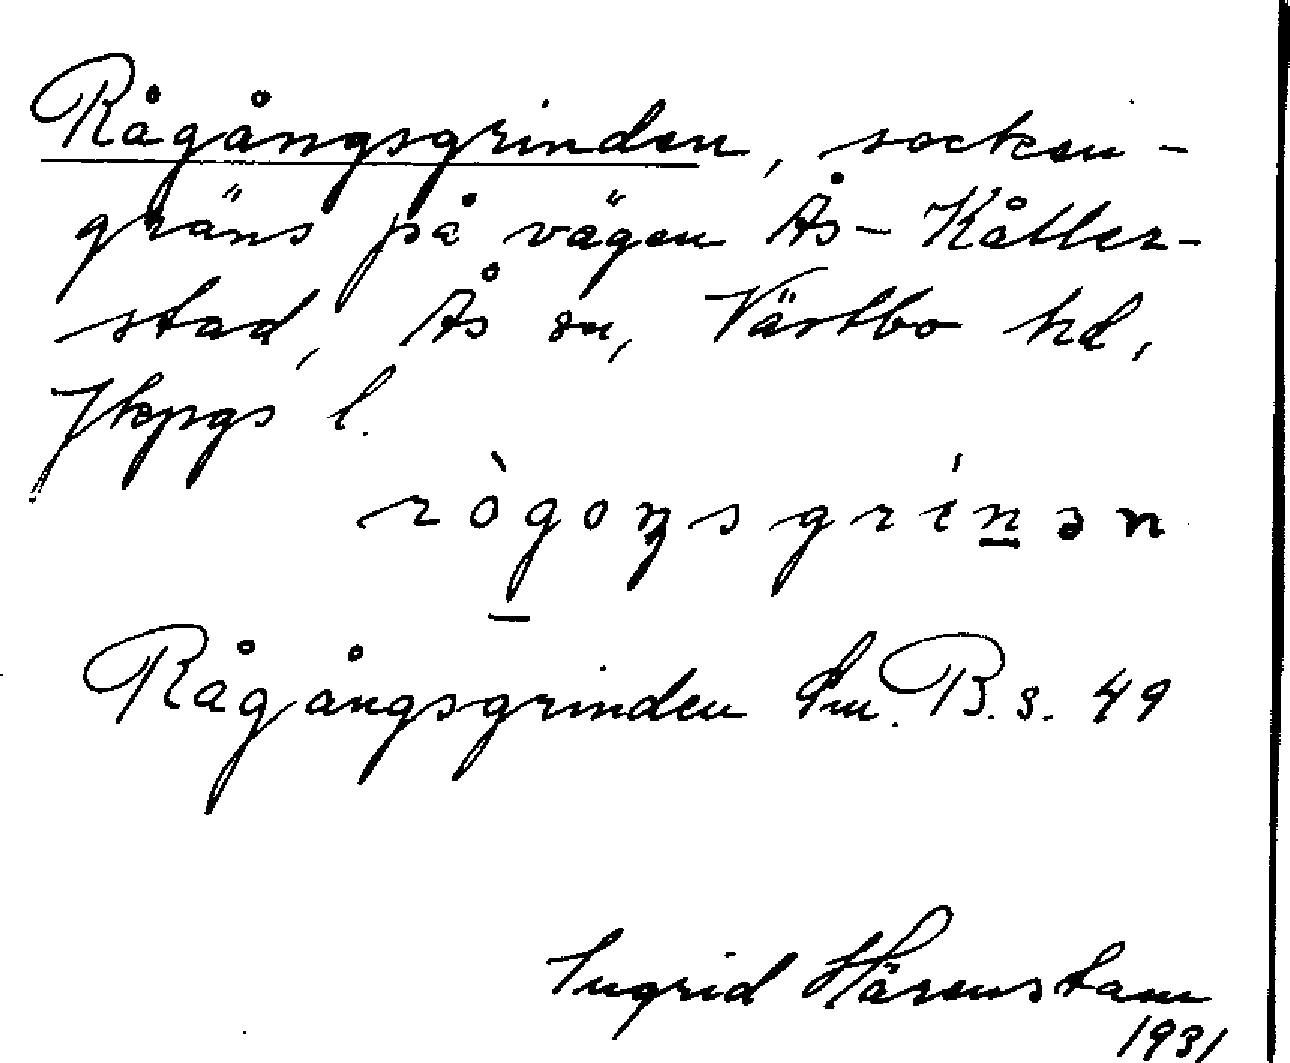 Rågångsgrinden, socken-
gräns på vägen Ås - Kåller-
stad, Ås sn, Västbo hd,
Jkpgs l.
rògoŋsgrínən
Rågångsgrinden Sm. B. s. 49
Ingrid Härenstam
1931